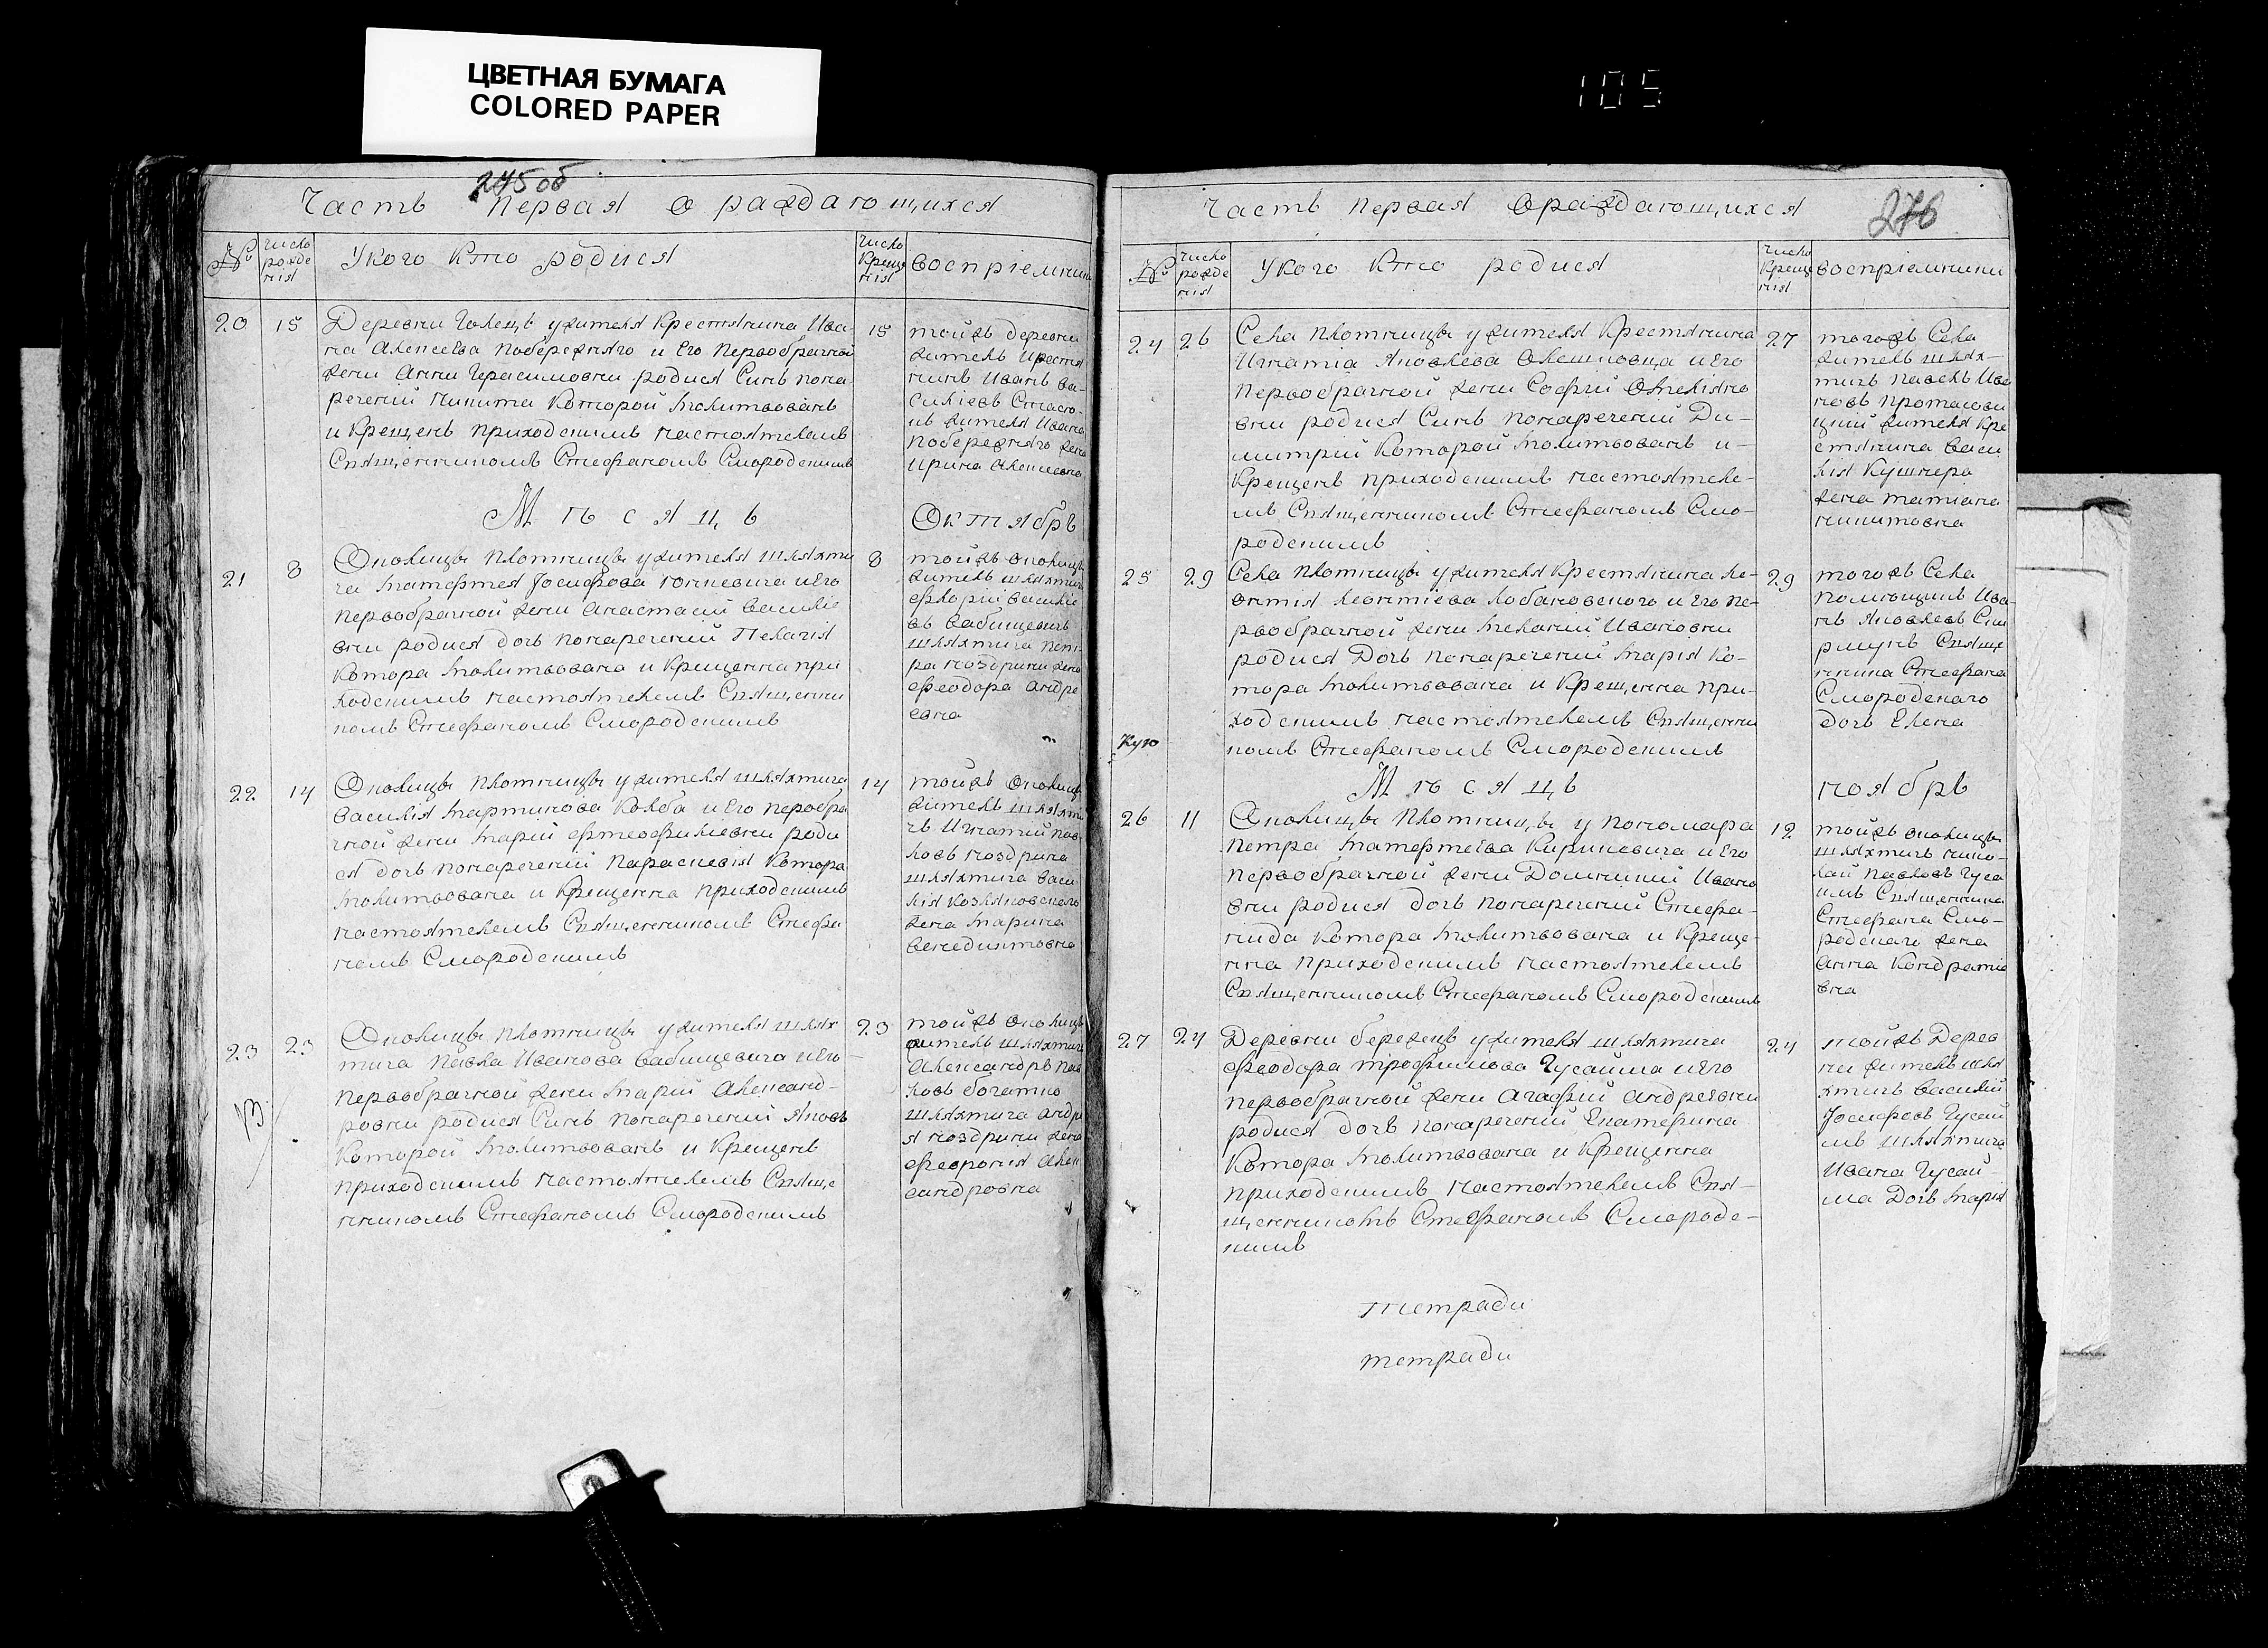 ЦВЕТНАЯ БУМАГА
COLORED PAPER
105
275 об
Часть Первая О раждающихся
№
число рожде нія
У кого кто родися
число Креще нія
воспріемники
20
15
Деревни Голецъ у жителя Крестянина Ива-
на Алексеева Побережняго и Его Первобрачной
жени Анни Герасимовни родися Синъ пона
речений Никита Которой Молитвованъ
и Крещенъ приходскимъ настоятелемъ
Священникомъ Стефаномъ Смородскимъ
15
тойжъ деревни
житель Крестя
нинъ Иванъ Ва-
силіевъ
жителя Ивана
Побережняго жена
Ирина Алексеевна
М ѣ с я ц ъ
Октябръ
21
8
Околицы Плотницы у жителя шляхти
ча Матфтея Іосифова Гопневича и Его
Первобрачной жени Анастасіи Василіе
вни родися дочъ понаречений Пелагія
Котора Молитвована и Крещенна при
ходскимъ настоятелемъ Священни
комъ Стефаномъ Смородскимъ
8
тойжъ околицы
житель шляхтичъ
Флоріи Василіе
въ Бабищевичъ
шляхтича Пет-
ра Ноздрини жена
Феодора Андре
евна
22
14
Околицы Плотницы у жителя шляхтича
Василія Мартинова Колба и Его Перобра
чной жени Маріи Фтеофилевни роди
ся дочъ понаречений Параскевія Котора
Молитвована и Крещенна приходскимъ
настоятелемъ Священникомъ Стефа
номъ Смородскимъ
14
тойжъ околицы
житель шляхти
чъ Игнатий Пав
ловъ Ноздрина
шляхтича Васи
лія Козляковского
жена Марина
Венедиктовна
23
23
Околицы Плотницы у жителя шлях
тича Павла Иванова Бабищевича и Его
Первобрачной жени Маріи Александ-
ровни родися Синъ понаречений Яковъ
Которой Молитвованъ и Крещенъ
приходскимъ настоятелемъ Свяще
нникомъ Стефаномъ Смородскимъ
23
тойжъ околицы
житель шляхтичъ
Александръ Пав
ловъ Богатко
шляхтича Андре
я Ноздрини жена
Феврония Алек
сандровна
Часть Первая О раждающихся
276
№
число рожде нія
У кого кто родися
число Креще нія
воспріемники
24
26
Села Плотницы у жителя Крестянина
Игнатія Яковлева Олешковца и Его
Первобрачной жени Софіи Омеляно
вни родися Синъ понаречений Ди-
митрий Которой Молитвованъ и-
Крещенъ приходскимъ настоятеле-
мъ Священникомъ Стефаномъ Смо-
родскимъ
27
тогожъ Села
житель шлях-
тичъ Павелъ Ива
новъ Протасови
цкий жителя Кре
стянина Васи
лія Кушнера
жена Татиана
Никитовна
25
29
Села Плотницы у жителя Крестянина Ле-
онтія Леонтіева Лобановского и Его Пе-
рвобрачной жени Меланий Ивановни
родися Дочъ понаречений Марія Ко-
тора Молитвована и Крещенна при-
ходскимъ настоятелемъ Священни
комъ Стефаномъ Смородскимъ
29
тогожъ Села
Ива-
нъ Яковлевъ
Священ
нника Стефана
Смородскаго
дочъ Елена
М ѣ с я ц ъ
ноябръ
26
11
Околицы Плотницы у пономара
Петра Матфтеева Кирикевича и Его
Первобрачной жени Домникий Ивано
вни родися дочъ понаречений Стефа-
нида Котора Молитвована и Креще-
нна приходскимъ настоятелемъ
Священникомъ Стефаномъ Смородскимъ
12
тойжъ околицы
шляхтичъ Нико-
лай Павловъ Гуса
имъ Священника
Стефана Смо-
родскаго жена
Анна Кондратие
вна
27
24
Деревни Бережцъ у жителя шляхтича
Феодора Трофимова Гусаима и Его
Первобрачной жени Агафий Андреевни
родися дочъ понаречений Екатерина
Котора Молитвована и Крещенна
приходскимъ настоятелемъ Свя-
щенникомъ Стефаномъ Смородс-
кимъ
24
тойжъ Дерев
ни житель шля
хтичъ Василий
Іосифовъ Гусаи
мъ шляхтича
Ивана Гусаи-
ма Дочъ Марія
тетради
тетради